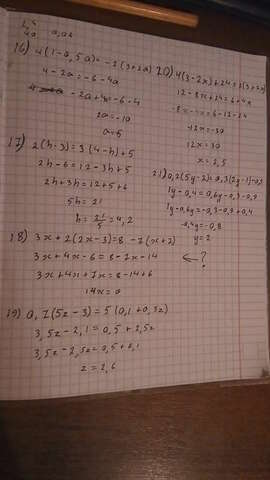 16) 4(1-0,5a)=-2(3+2a)
4-2a=-6-4a
-2a+4a=-6-4
2a=-10
a=5
17) 2(h-3)=3(4-h)+5
2h-6=12-3h+5
2h+3h=12+5+6
5h=21
h=21/5=4,2
18) 3x+2(2x-3)=8-7(x+2)
3x+4x-6=8-7x-14
3x+4x+7x=8-14+6
14x=0
19) 0,7(5z-3)=5(0,1+0,5z)
3,5z-2,1=0,5+2,5z
3,5z-2,5z=0,5+2,1
z=2,6
20) 4(3-2x)+24=2(3+2x)
12-8x+24=6+4x
-8x-4x=6-12-24
-12x=-30
12x=30
x=2,5
21) 0,2(5y-2)=0,3(2y-1)-0,9
1y-0,4=0,6y-0,3-0,9
1y-0,6y=-0,3-0,9+0,4
0,4y=-0,8
y=2
?